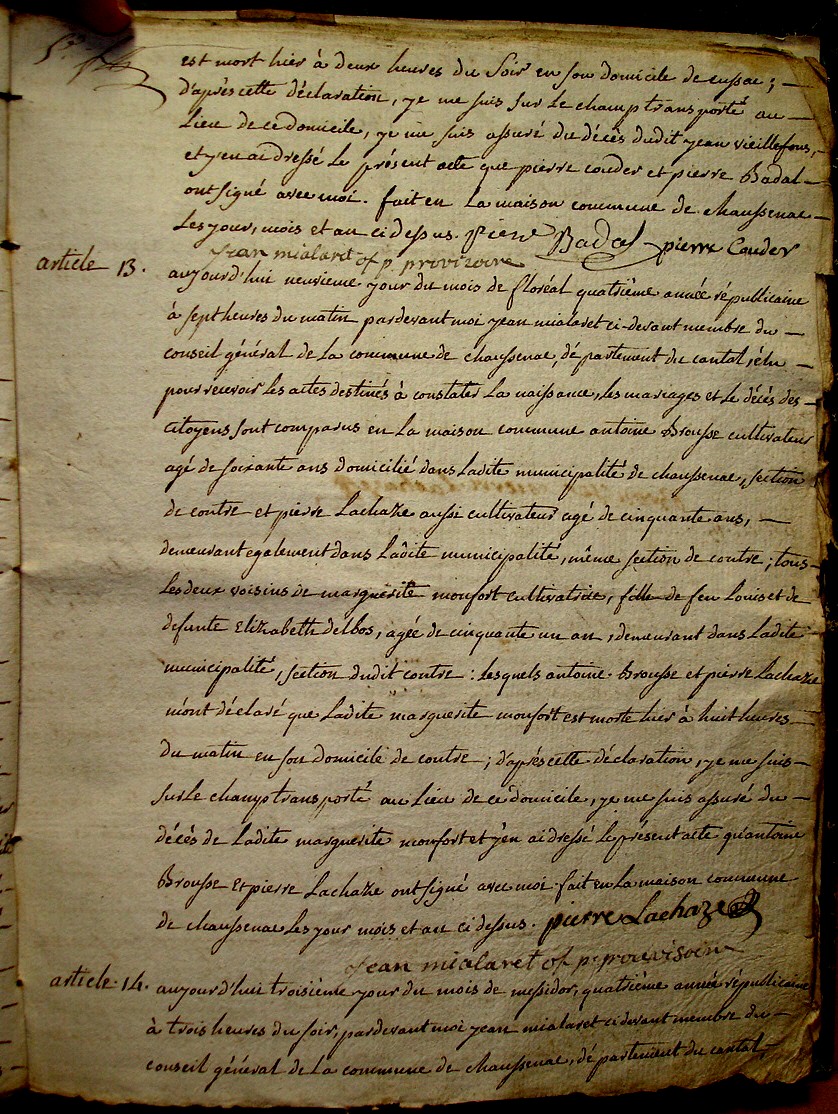 est mort hier à deux heures du soir en son domicile de ; —
d'après cette déclaration, je me suis sur le champ transporté au —
lieu de ce domicile, je me suis assuré du décès dudit jean vieillefons,
et j'en ai dressé le présent acte que pierre couder et pierre Badal —
ont signé avec moi. fait en la maison commune de chaussenac —
les jour, mois et an ci dessus. piere Badal pierre Couder
jean mialaret of p. provizoire
article 13.
aujourd'hui neuvieme jour du mois de floréal quatrième année républicaine
à sept heures du matin pardevant moi jean mialaret ci-devant membre du —
conseil général de la commune de chaussenac, département du cantal, élu —
pour recevoir les actes destinés à constater la naissance, les mariages et le décès des —
citoyens sont comparus en la maison commune antoine Brousse cultivateur
agé de soixante ans domicilié dans ladite municipalité de chaussenac, section
de contre et pierre Lachaze aussi cultivateur agé de cinquante ans, —
demeurant également dans ladite municipalité, même section de contre ; tous
les deux voisins de marguerite monfort cultivatrice, fille de feu Louis et de
defunte Elizabeth delbos, agée de cinquante un an, demeurant dans ladite
municipalité, section dudit contre : lesquels antoine Brousse et pierre Lachaze
m'ont déclaré que ladite marguerite monfort est morte hier à huit heures —
du matin en son domicile de contre ; d'après cette déclaration, je me suis —
sur le champ transporté au lieu de ce domicile, je me suis assuré du —
décès de ladite marguerite monfort et j'en ai dressé le présent acte qu'antoine
Brousse et pierre Lachaze ont signé avec moi. fait en la maison commune
de chaussenac les jour mois et an ci dessus. pierre Lachaze
jean mialaret of p. prouvisoire
article. 14. aujourd'hui troisième jour du mois de messidor, quatrième année républicaine
à trois heures du soir, pardevant moi jean mialaret ci devant membre du —
conseil général de la commune de chaussenac, département du cantal,